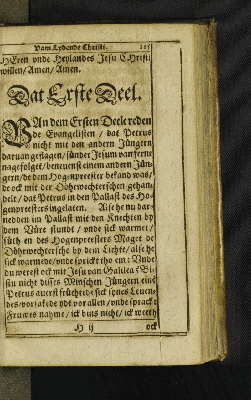 Vam Lydende Christi. 115
HEren vnde Heylandes Jesu CHristi
willen / Amen / Amen.
Dat Erste Deel.
VAn dem Ersten Deele reden
de Evangelisten / dat Petrus
nicht mit den andern Jüngern
daruan geflagen / sünder Jesum van ferne
nagefolget / beneuenst einem andern Jün-
gern / de dem Hogenpreester bekand was /
de ock mit der Döhrwechterschen gehan-
delt / dat Petrus in den Pallast des Ho-
genpreesters ingelaten. Alse he nu dar-
nedden im Pallast mit den Knechten by
dem Vüre stundt / vnde sick warmet /
süth en des Hogenpreesters Maget de
Döhrwechtersche by dem Lichte / alse he
sick warmede / vnde spricht tho em: Vnde
du werest ock mit Jesu van Galilea? Bi-
stu nicht disses Minschen Jüngern eine
Petrus auerst früchtede sick synes Leuen-
des / vorsakede ydt vor allen / vnde sprack:
Fruwes nahme / ick bins nicht / ick weeth
H ij ock